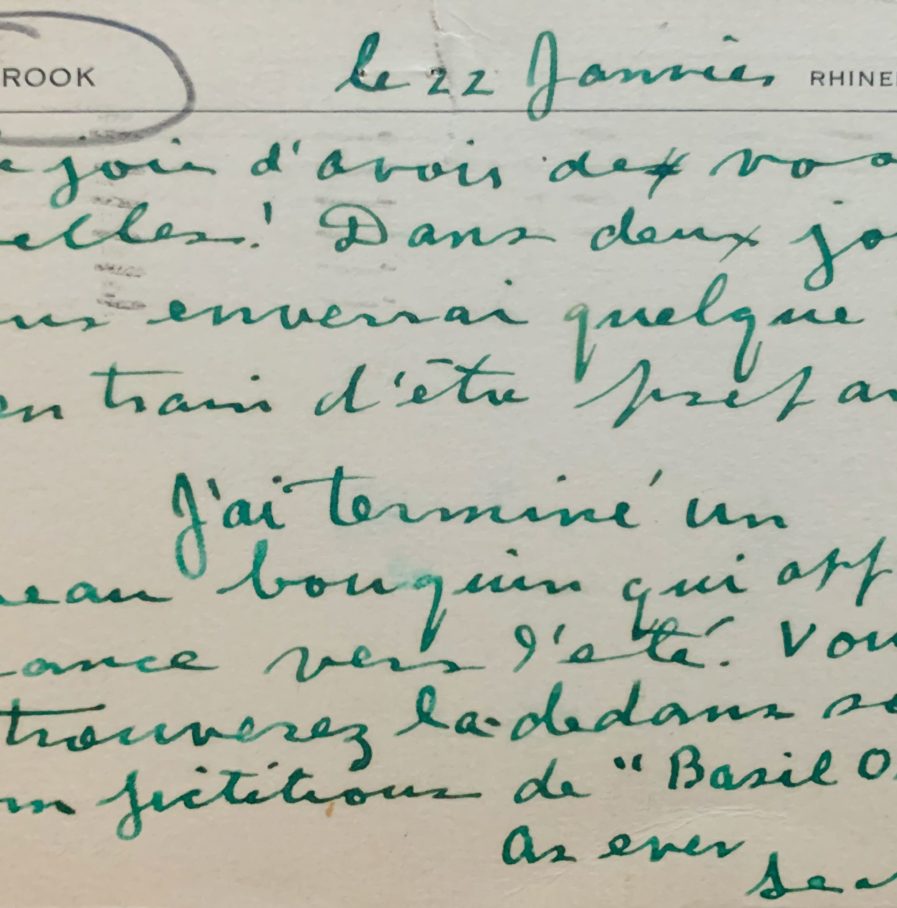 ROOK le 22 Janvier RHINE
e joie d'avoir de vo
elles! Dans deux jo
us enverrai quelque
en train d'être prépa
J'ai terminé un
eau bouquin qui app
rance vers l'eté. Vou
trouverez la-dedans so
om fictitious de "Basil O
As ever
Sea